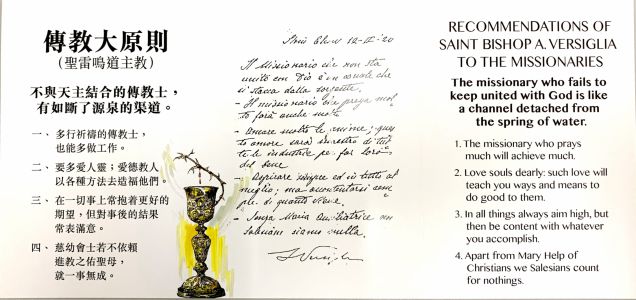 傳教大原則
（聖雷鳴道主教）
不與天主結合的傳教士，
有如斷了源泉的渠道。
一、多行祈禱的傳教士，
也能多做工作。
二、要多愛人靈；愛德教人
以各種方法去造福他們。
三、在一切事上常抱着更好的
期望，但對事後的結果
常表滿意。
四、慈幼會士若不依賴
進教之佑聖母，
就一事無成。
12-II-20
Il Missionario che non sta
unito con Dio è un canale che
si stacca dalla sorgente.
- Il missionario che prega mol
to farà anche molto
- Amare molto le anime; ques
to amore sarà maestro di tut
te le industrie per far loro
del bene
- Aspirare sempre ed in tutto al
meglio; ma accontentarsi sem
pre di quanto viene.
- Senza Maria Ausiliatrice noi
Salesiani siamo nulla.
L Versiglia
RECOMMENDATIONS OF
SAINT BISHOP A. VERSIGLIA
TO THE MISSIONARIES
The missionary who fails to
keep united with God is like
a channel detached from
the spring of water.
1. The missionary who prays
much will achieve much.
2. Love souls dearly: such love will
teach you ways and means to
do good to them.
3. In all things always aim high, but
then be content with whatever
you accomplish.
4. Apart from Mary Help of
Christians we Salesians count
for nothings.